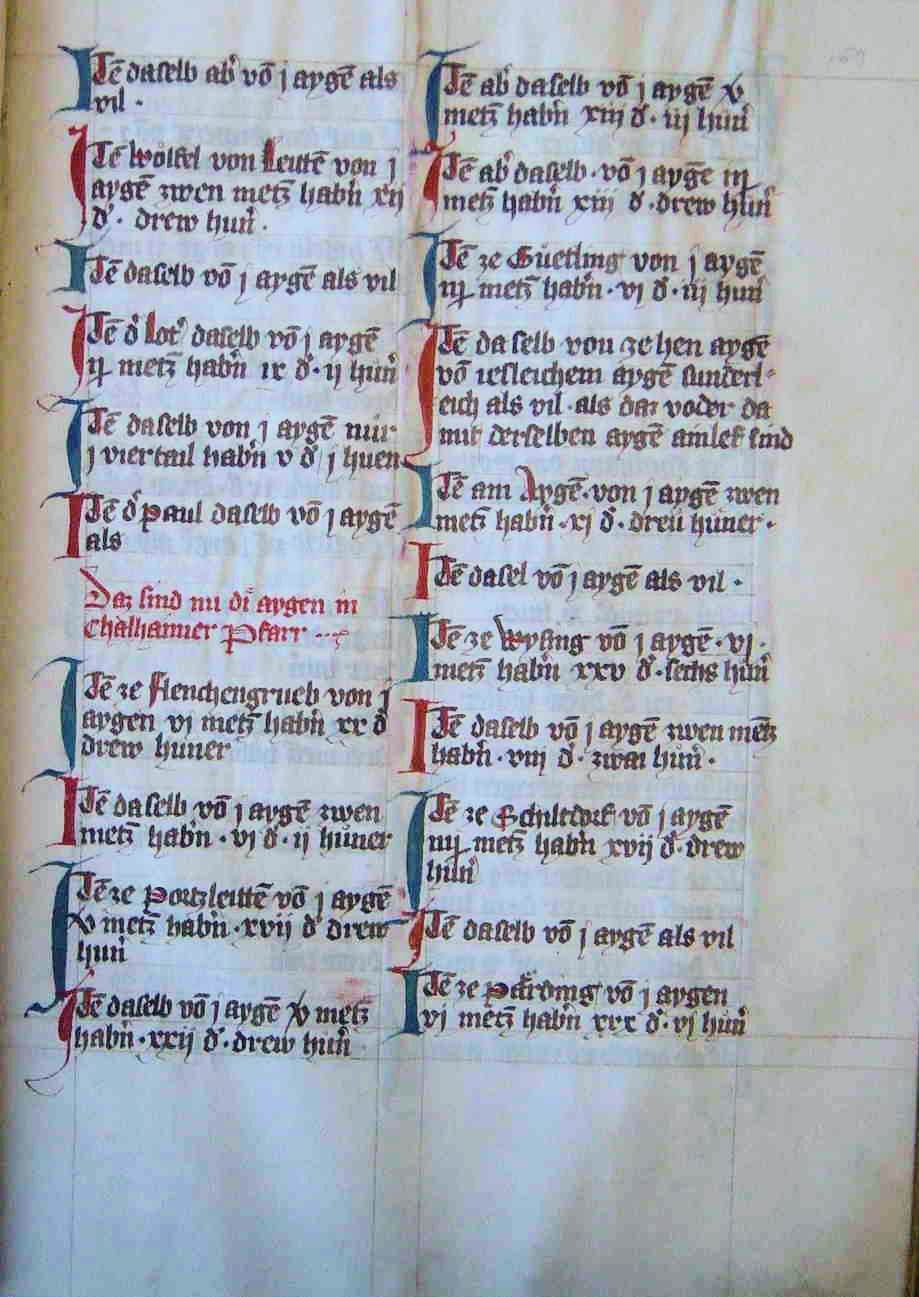 Itē daselb ab̾ vō j aygē als
vil ·
Itē Wölfel von Leutē von j
aygē zwen metz̄ habn̾ xij
d̾ · drew hun̾ ·
Itē daselb vō j aygē als vil
Itē d̾ Lot̾ daselb vō j aygē
metz̄ habn̾ ix d̾ · ij hun̾
Itē daselb von j aygē nur
j viertail habn̾ v d̾ j huen
Itē d̾ Paul daselb vō j aygē
als
Daz sind nu di aygen in
Chalhaimer Pfarr
Itē ze flenchengrueb von j
aygen vj metz̄ habn̾ xx d̾
drew huner
Itē daselb vō j aygē zwen
metz̄ habn̾ · vj d̾ · ij hůner
Itē ze Portzleitē vō j aygē
v metz̄ habn̾ · xvij d̾ drew
hun̾
Itē daselb vō j aygē v metz̄
habn̾ · xxij d̾ · drew hun̾
Itē ab̾ daselb vō j aygē v
metz̄ habn̾ xiij d̾ · iij hun̾
Itē ab̾ daselb · vō j aygē
metz̄ habn̾ xiij d̾ · drew hun̾
Itē ze Gůetling von j aygē
metz̄ habn̾ · vj d̾ · iij hun̾
Itē da selb von ze hen aygē
vō iesleichem aygē sunderl⸗
eich als vil · als daz voder da
mit derselben aygē ainlef sind
Itē am Aygē · von j aygē zwen
metz̄ habn̾ · xj d̾ · dreu hůner ·
Itē dasel vō j aygē als vil ·
Itē ze Wysing vō j aygē · vj ·
metz̄ habn̾ · xxv d̾ · sechs hun̾
Itē daselb vō j aygē zwen metz̄
habn̾ · viij d̾ · zwai hun̾ ·
Itē ze Schiltdorf vō j aygē
metz̄ habn̾ xvij d̾ · drew
hun̾
Itē daselb vō j aygē als vil
Itē ze vō j aygen
vj metz̄ habn̾ xxx d̾ · vj hun̾